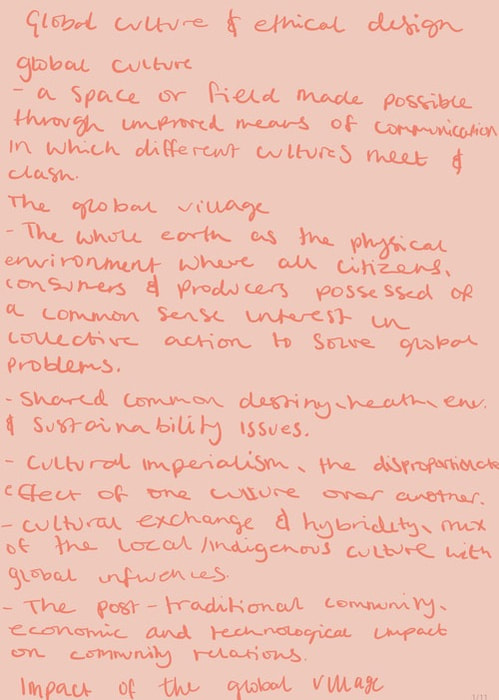 Global culture & ethical design
global culture
- a space or field made possible
through improved means of communication
in which different cultures meet &
clash.
The global village
- The whole earth as the physical
environment where all citizens,
consumers & producers possessed of
a common sense interest in
collective action to solve global
problems.
- shared common destiny, health, env.
& sustainability issues.
- cultural imperialism, the disproportionate
effect of one culture over another.
- cultural exchange & hybridety, mix
of the local/indigenous culture with
global influences.
- The post-traditional community,
economic and technological impact
on community relations.
Impact of the global village
1/11